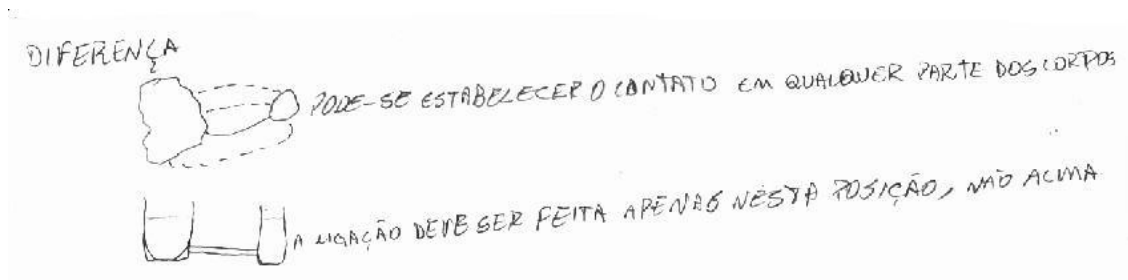 DIFERENÇA
PODE-SE ESTABELECER O CONTATO EM QUALQUER PARTE DOS CORPOS
A LIGAÇÃO DEVE SER FEITA APENAS NESTA POSIÇÃO, NÃO ACIMA